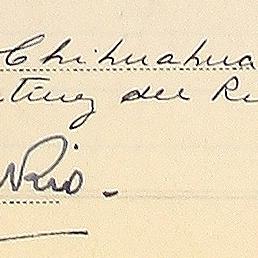 Chihuahua
tinez del R
Rio.